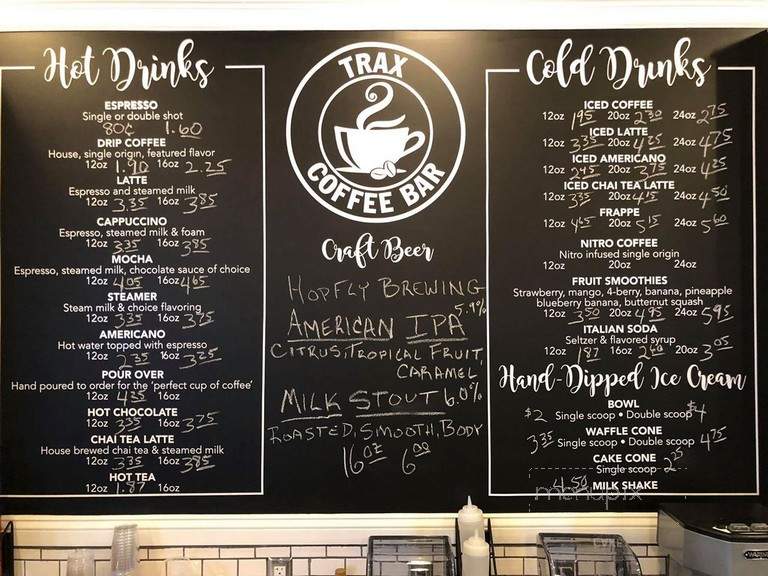 Hot Drinks
ESPRESSO
Single or double shot
80¢ 1.60
DRIP COFFEE
House, single origin, featured flavor
12oz 1.90 16oz 2.25
LATTE
Espresso and steamed milk
12oz 3.35 16oz 3.85
CAPPUCCINO
Espresso, steamed milk & foam
12oz 3.35 16oz 3.85
MOCHA
Espresso, steamed milk, chocolate sauce of choice
12oz 4.05 16oz 4.65
STEAMER
Steam milk & choice flavoring
12oz 3.35 16oz
AMERICANO
Hot water topped with espresso
12oz 2.35 16oz 3.25
POUR OVER
Hand poured to order for the 'perfect cup of coffee'
12oz 4.35 16oz
HOT CHOCOLATE
12oz 3.35 16oz 3.75
CHAI TEA LATTE
House brewed chai tea & steamed milk
12oz 3.35 16oz 3.85
HOT TEA
12oz 1.87 16oz
TRAX
COFFEE BAR
Craft Beer
HOPFLY BREWING
AMERICAN IPA 5.9%
CITRUS, TROPICAL FRUIT,
CARAMEL
MILK STOUT 6.0%
ROASTED, SMOOTH, BODY
16oz 6.00
Cold Drinks
ICED COFFEE
12oz 1.95 20oz 2.30 24oz 2.75
ICED LATTE
12oz 3.35 20oz 4.25 24oz 4.75
ICED AMERICANO
12oz 2.45 20oz 3.75 24oz 4.25
ICED CHAI TEA LATTE
12oz 3.35 20oz 4.15 24oz 4.50
FRAPPE
12oz 4.65 20oz 5.15 24oz 5.60
NITRO COFFEE
Nitro infused single origin
12oz 20oz 24oz
FRUIT SMOOTHIES
Strawberry, mango, 4-berry, banana, pineapple
blueberry banana, butternut squash
12oz 3.50 20oz 4.95 24oz 5.95
ITALIAN SODA
Seltzer & flavored syrup
12oz 1.87 16oz 2.60 20oz 3.05
Hand-Dipped Ice Cream
BOWL
$2 Single scoop • Double scoop $4
WAFFLE CONE
3.35 Single scoop • Double scoop 4.75
CAKE CONE
Single scoop 2.25
4.50 MILK SHAKE
menupix